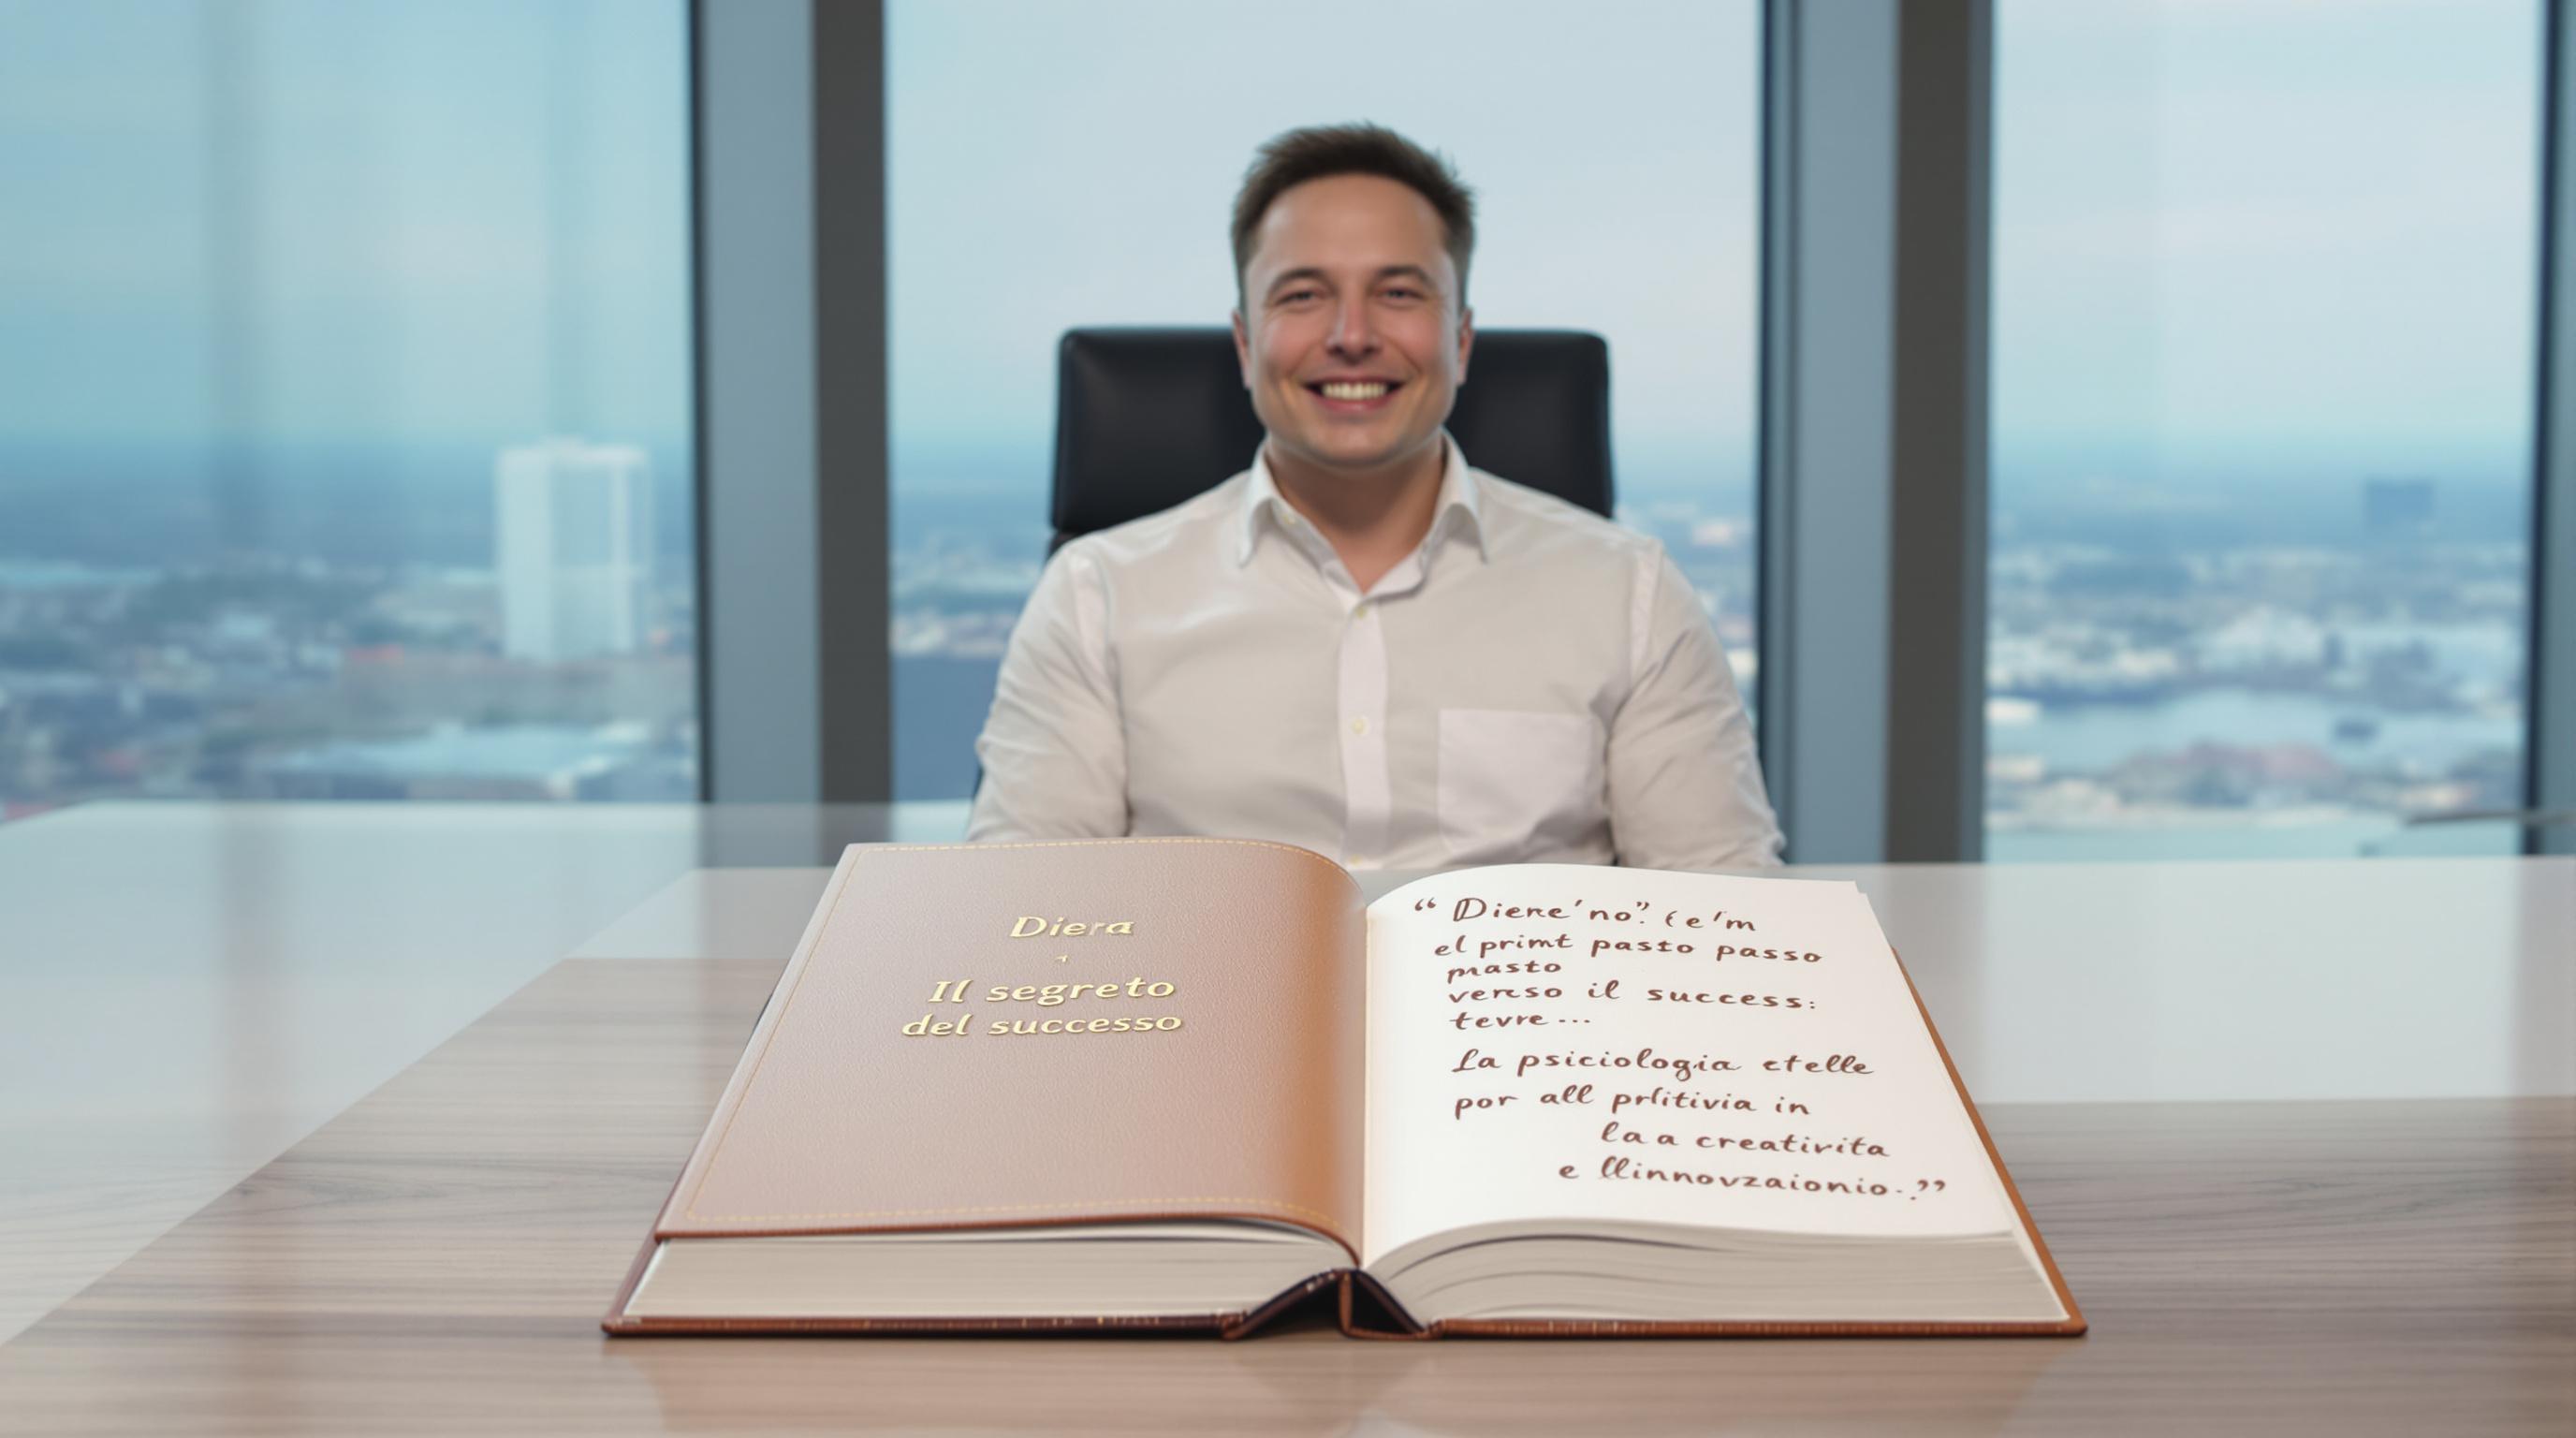 Diera
Il segreto
del successo
“ Diere'no”. (e'm
el primt pasto passo
masto
verso il success:
tevre...
La psiciologia etelle
por all prlitivia in
la a creativita
e llinnovzaionio..”